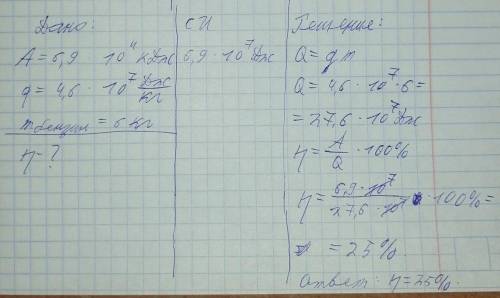 Дано:
A = 6,9 · 10⁴ кДж
q = 4,6 · 10⁷ Дж/кг
m бензин = 6 кг
η - ?
СИ
6,9 · 10⁷ Дж
Решение:
Q = qm
Q = 4,6 · 10⁷ · 6 =
= 27,6 · 10⁷ Дж
η = A/Q · 100%
η = 6,9 · 10⁷ / 27,6 · 10⁷ · 100% =
= 25%.
Ответ: η = 25%.